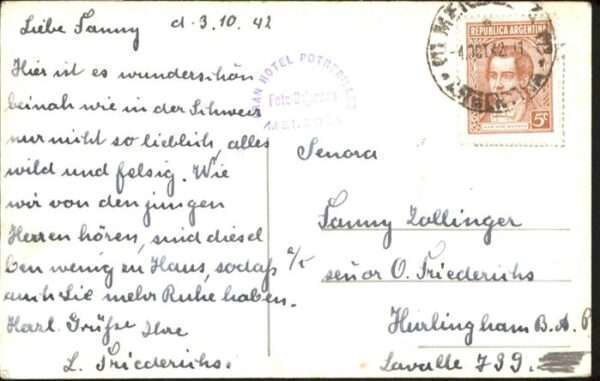 Liebe Fanny d. 3.10.42
Hier ist es wunderschön
beinah wie in der Schweiz
nur nicht so lieblich, alles
wild und felsig. Wie
wir von den jungen
Herren hören, sind diesel
ben wenig zu Haus, sodaß
auch Sie mehr Ruhe haben.
Herzl. Grüße Ihre
L. Friederichs.
GRAN HOTEL POTRERILLOS
MENDOZA
4 OCT 42
ARGENTINA
REPUBLICA ARGENTINA
5c
Senora
Fanny Zollinger
a/c señor O. Friederichs
Hurlingham B.A.P
Lavalle 739